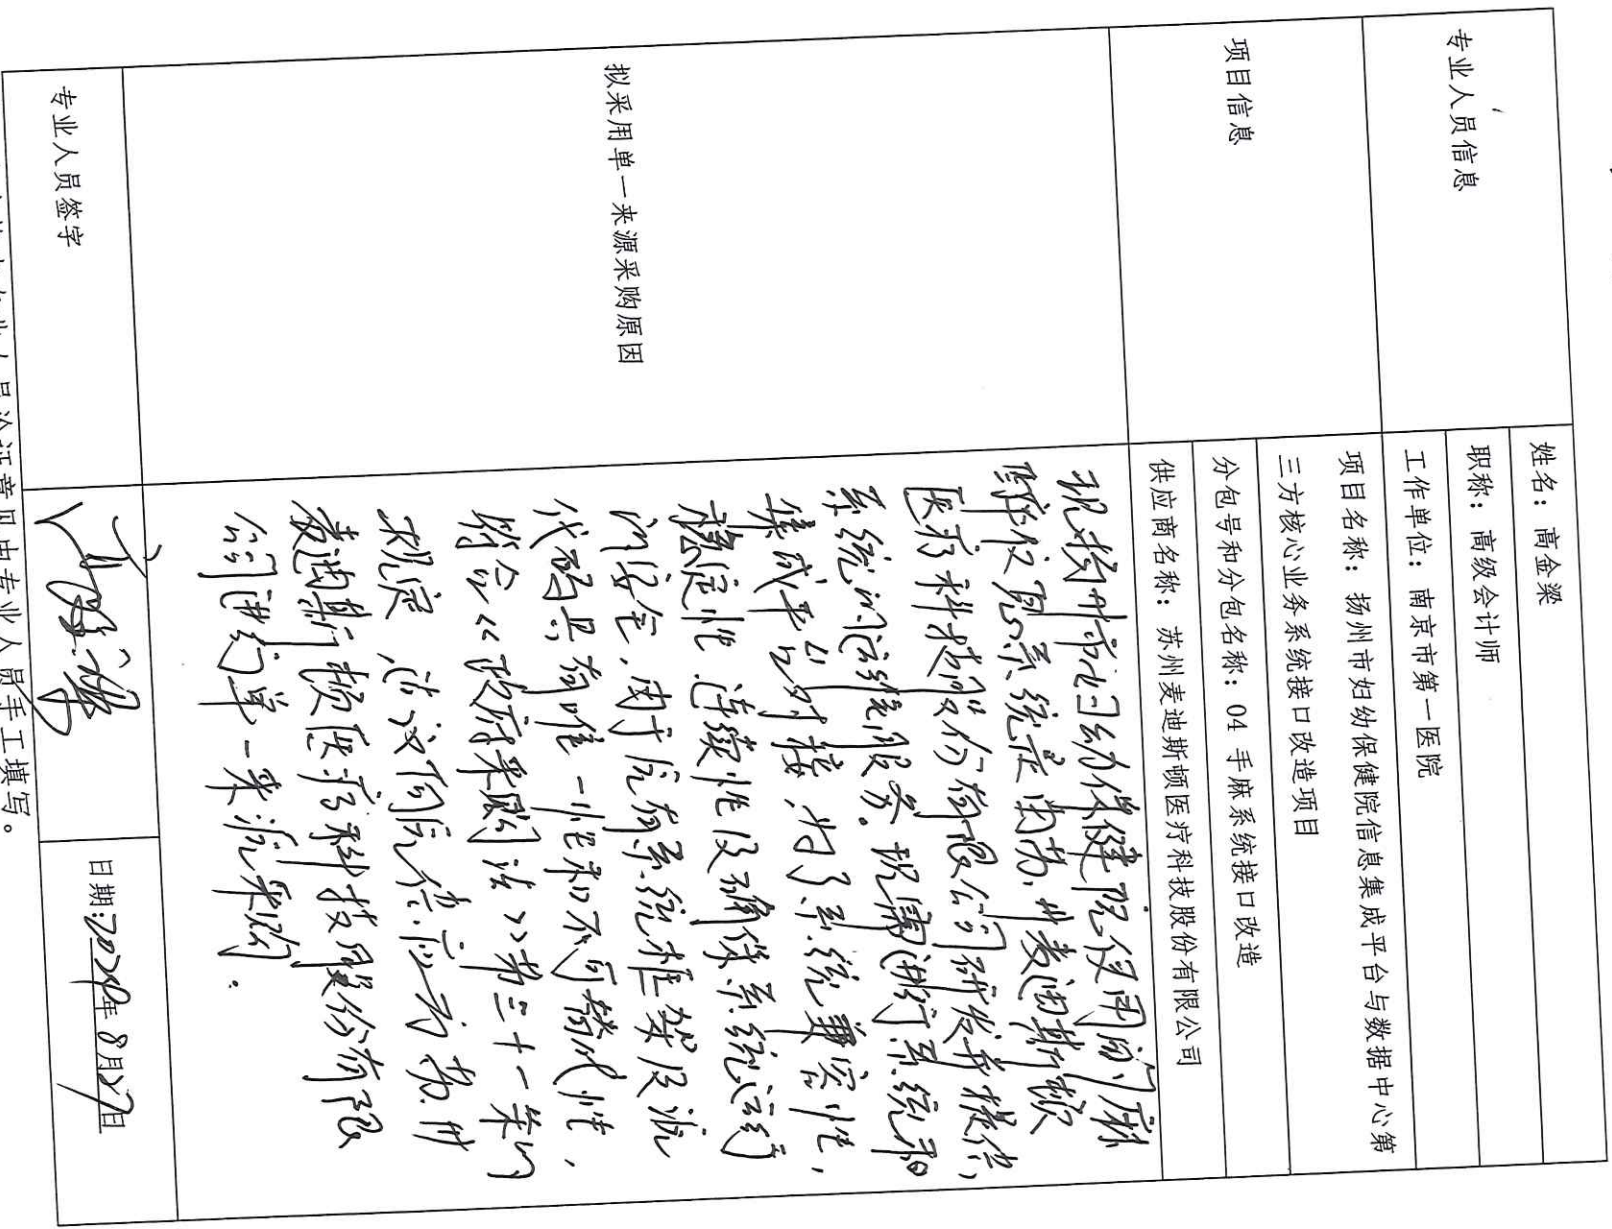 专业人员信息
姓名：高金梁
职称：高级会计师
工作单位：南京市第一医院
项目信息
项目名称：扬州市妇幼保健院信息集成平台与数据中心第
三方核心业务系统接口改造项目
分包号和分包名称：04 手麻系统接口改造
供应商名称：苏州麦迪斯顿医疗科技股份有限公司
拟采用单一来源采购原因
现扬州市妇幼保健院使用的麻
醉仪息系统是由苏州麦迪斯顿
医疗科技股份有限公司研发并提供，
系统的运维服务。现需进行系统和
集成平台对接，为了系统兼容性，
稳定性，连续性及确保系统运行
的安全，由于原有系统框架及源
代码具有唯一性和不可替代性，
符合《政府采购法》第三十一条的
规定，建议向供应商苏州
麦迪斯顿医疗科技股份有限
公司进行单一来源采购。
专业人员签字
高金梁
日期：2024年8月27日
业人员论证意见由专业人员手工填写。